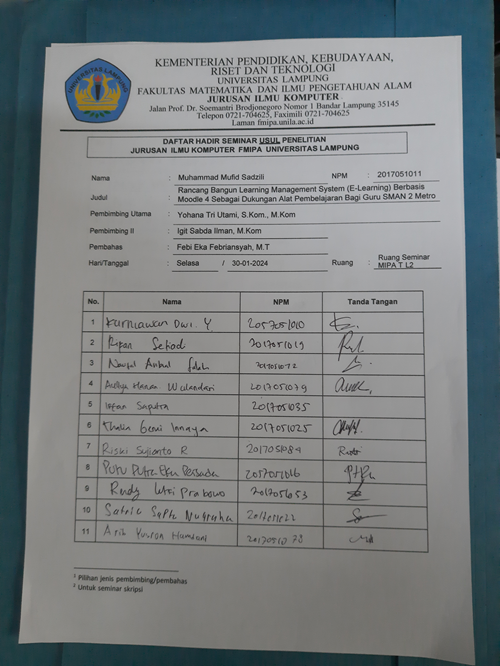 UNIVERSITAS LAMPUNG
KEMENTERIAN PENDIDIKAN, KEBUDAYAAN,
RISET DAN TEKNOLOGI
UNIVERSITAS LAMPUNG
FAKULTAS MATEMATIKA DAN ILMU PENGETAHUAN ALAM
JURUSAN ILMU KOMPUTER
Jalan Prof. Dr. Soemantri Brodjonegoro Nomor 1 Bandar Lampung 35145
Telepon 0721-704625, Faximili 0721-704625
Laman fmipa.unila.ac.id
DAFTAR HADIR SEMINAR USUL PENELITIAN
JURUSAN ILMU KOMPUTER FMIPA UNIVERSITAS LAMPUNG
Nama : Muhammad Mufid Sadzili NPM : 2017051011
Judul : Rancang Bangun Learning Management System (E-Learning) Berbasis
Moodle 4 Sebagai Dukungan Alat Pembelajaran Bagi Guru SMAN 2 Metro
Pembimbing Utama : Yohana Tri Utami, S.Kom., M.Kom
Pembimbing II : Igit Sabda Ilman, M.Kom
Pembahas : Febi Eka Febriansyah, M.T
Hari/Tanggal : Selasa / 30-01-2024 Ruang : Ruang Seminar
MIPA T L2
No. Nama NPM Tanda Tangan
1 Kurniawan Dwi. Y
2 Setiadi 2017051019
3
4 Wulandari 2017051079
5 Irfan Saputra 2017051035
6 Thalia 2017051025
7 Riski Sujianto R 2017051084
8 Putu Putra Eka Persada
9 Rendy Prabowo 2017051053
10 Satria
11
1 Pilihan jenis pembimbing/pembahas
2 Untuk seminar skripsi